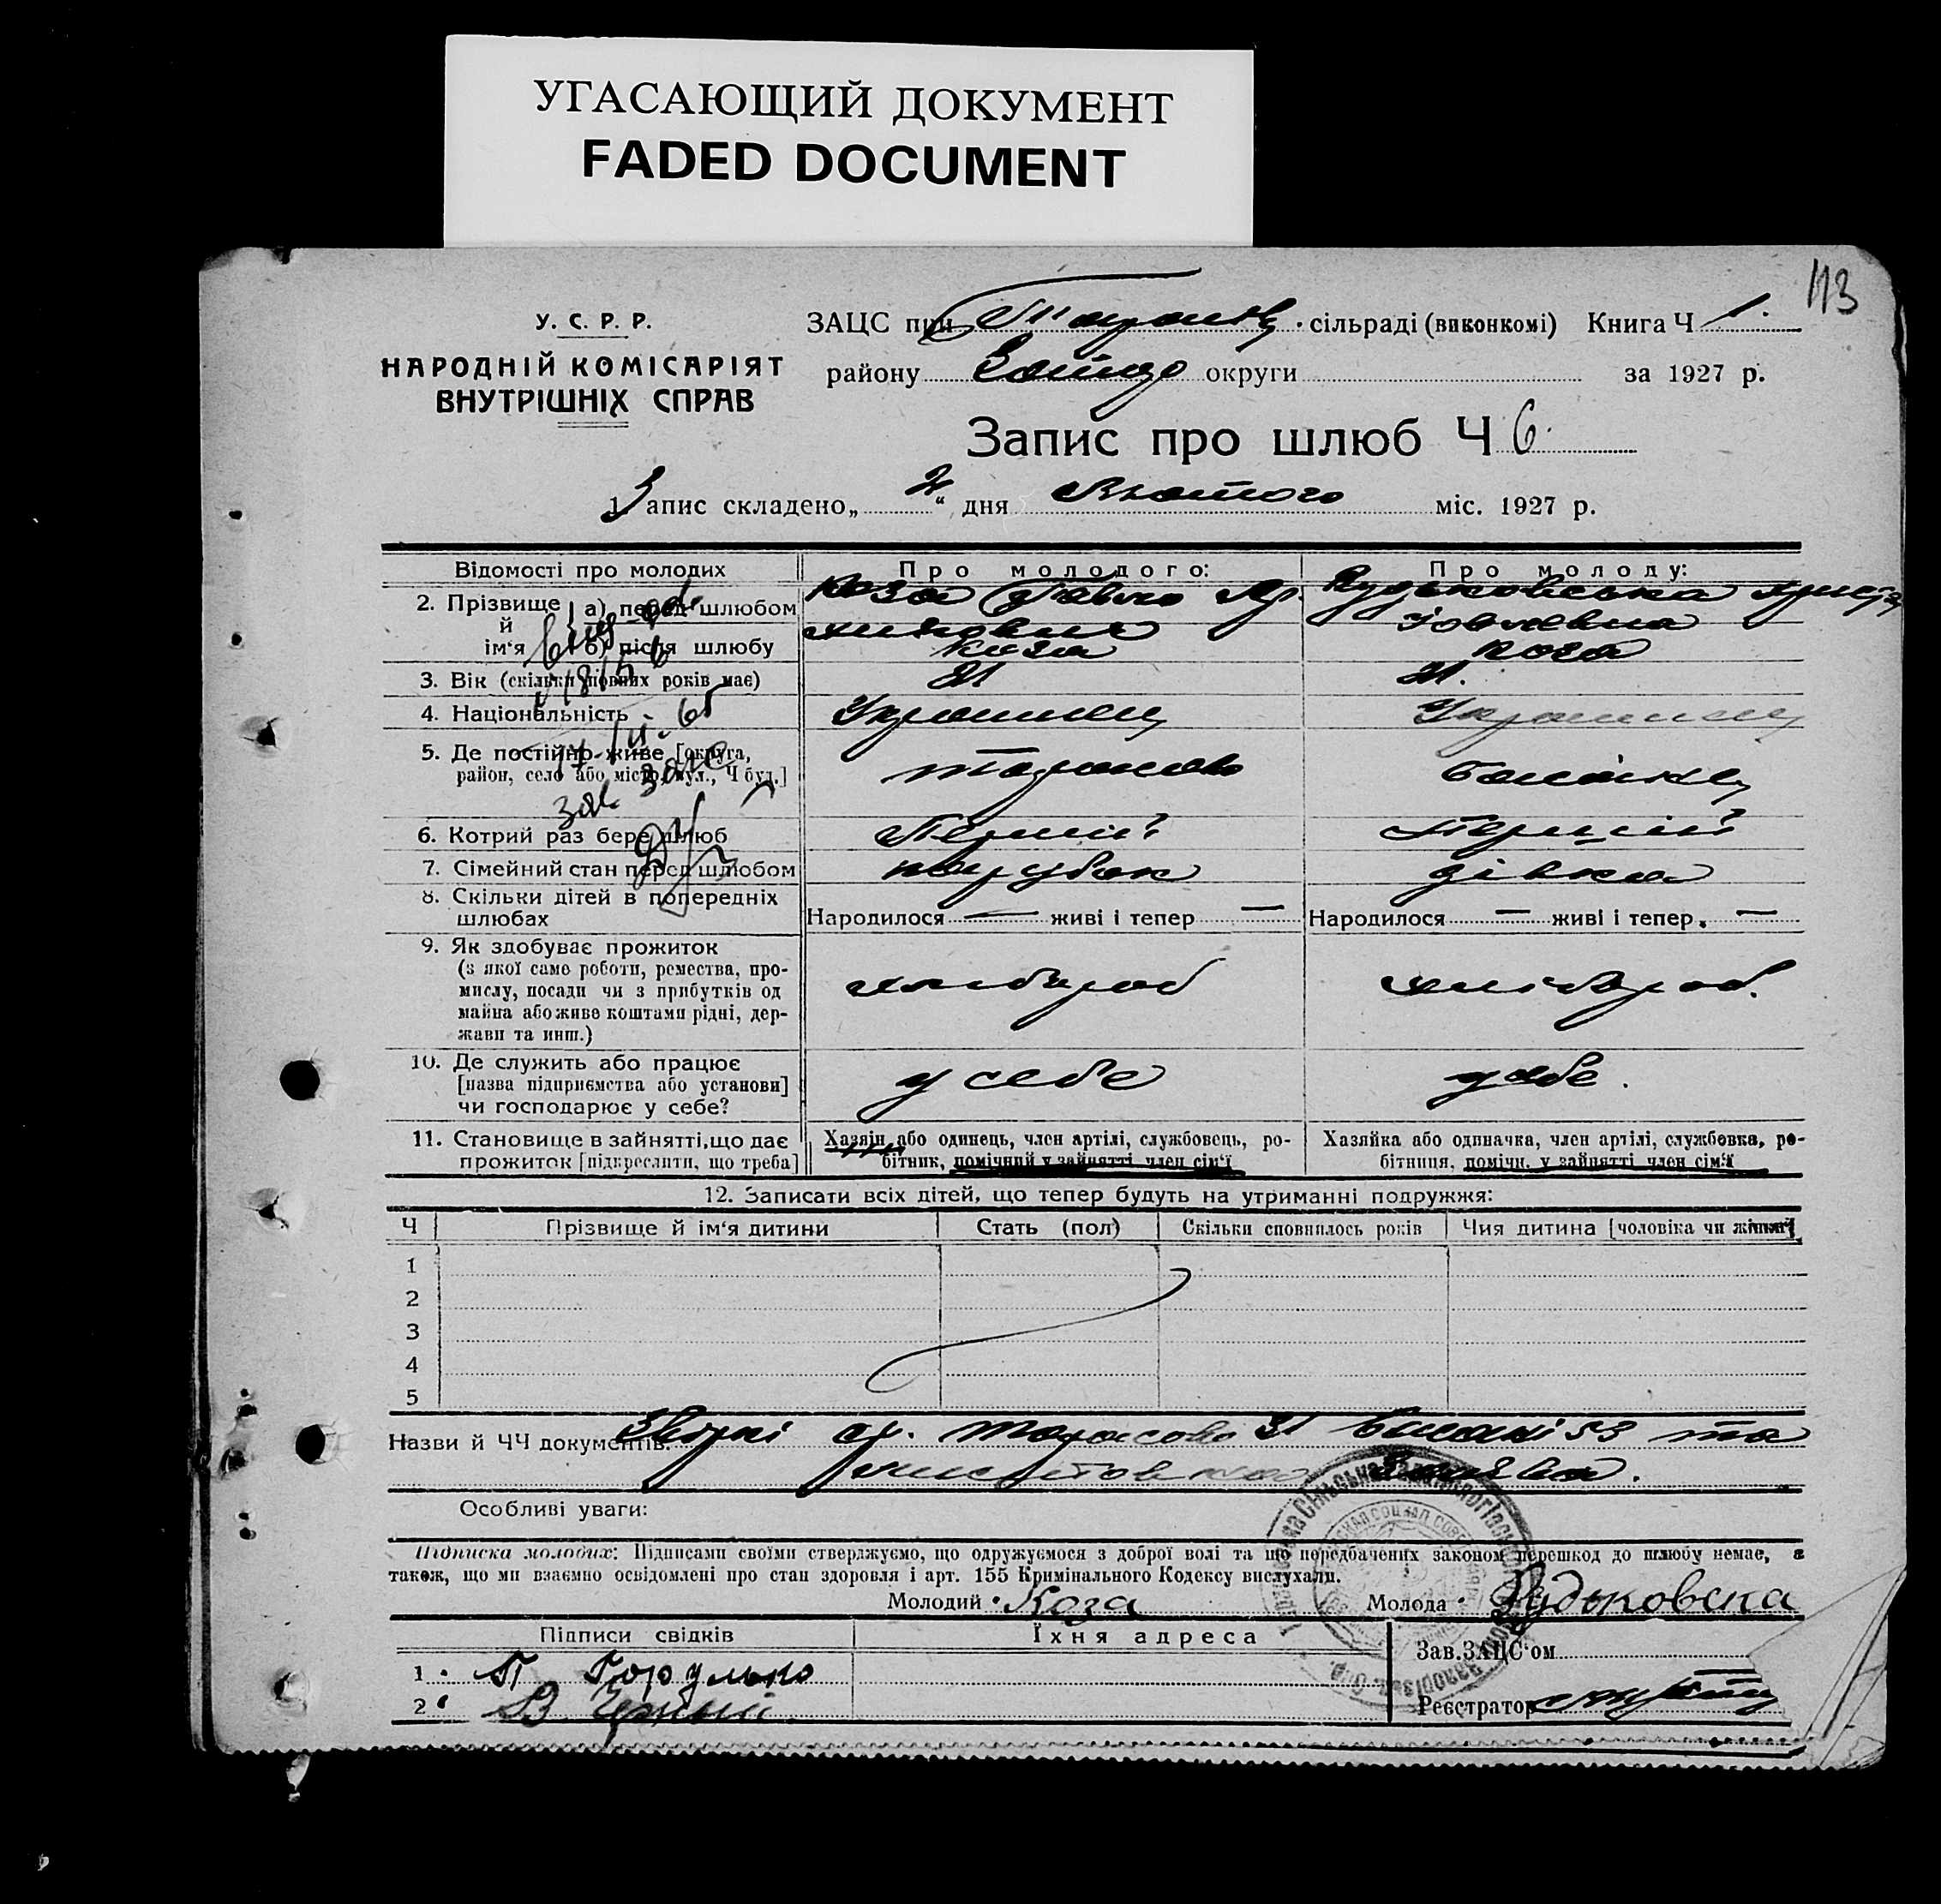 УГАСАЮЩИЙ ДОКУМЕНТ
FADED DOCUMENT
113
У. С. Р. Р.
НАРОДНІЙ КОМІСАРІЯТ
ВНУТРІШНІХ СПРАВ
ЗАЦС при сільраді (виконкомі) Книга Ч 1.
району округи за 1927 р.
Запис про шлюб Ч 6.
1. Запис складено „2“ дня Лютого міс. 1927 р.
Відомості про молодих Про молодого: Про молоду:
2. Прізвище й ім'я а) перед шлюбом Коза Павло Рудьковська
Йовлевна
б) після шлюбу Коза Коза
3. Вік (скільки повних років має) 21 21.
4. Національність Украинец Украинец
5. Де постійно живе [округа, Тарасовка
район, село або місто, вул., Ч буд.]
6. Котрий раз бере шлюб Перший Перший
7. Сімейний стан перед шлюбом парубок дівка
8. Скільки дітей в попередніх
шлюбах Народилося — живі і тепер — Народилося — живі і тепер —
9. Як здобуває прожиток
(з якої саме роботи, ремества, про-
мислу, посади чи з прибутків од хлібороб хлібороб.
майна або живе коштами рідні, дер-
жави та инш.)
10. Де служить або працює
[назва підприємства або установи] у себе у себе.
чи господарює у себе?
11. Становище в зайнятті, що дає Хазяїн або одинець, член артілі, службовець, ро- Хазяйка або одиначка, член артілі, службовка, ро-
прожиток [підкреслити, що треба] бітник, помічний у зайнятті член сім'ї бітниця, помічн. у зайнятті член сім'ї
12. Записати всіх дітей, що тепер будуть на утриманні подружжя:
Ч Прізвище й ім'я дитини Стать (пол) Скільки сповнилось років Чия дитина [чоловіка чи жінки]
1
2
3
4
5
Назви й ЧЧ документів: 31 53 та
Особливі уваги:
Підписка молодих: Підписами своїми стверджуємо, що одружуємося з доброї волі та що передбачених законом перешкод до шлюбу немає, а
також, що ми взаємно освідомлені про стан здоровля і арт. 155 Кримінального Кодексу вислухали.
Молодий Коза Молода Рудьковска
Підписи свідків Їхня адреса Зав. ЗАЦС'ом
1. П Гордулько
2. В Реєстратор